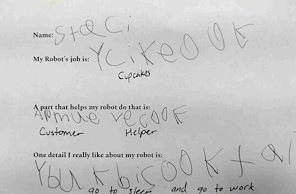 Name: staci
My Robot's job is: YciKeOOK
Cupcakes
A part that helps my robot do that is:
vecook
Customer Helper
One detail I really like about my robot is:
go to sleep and go to work